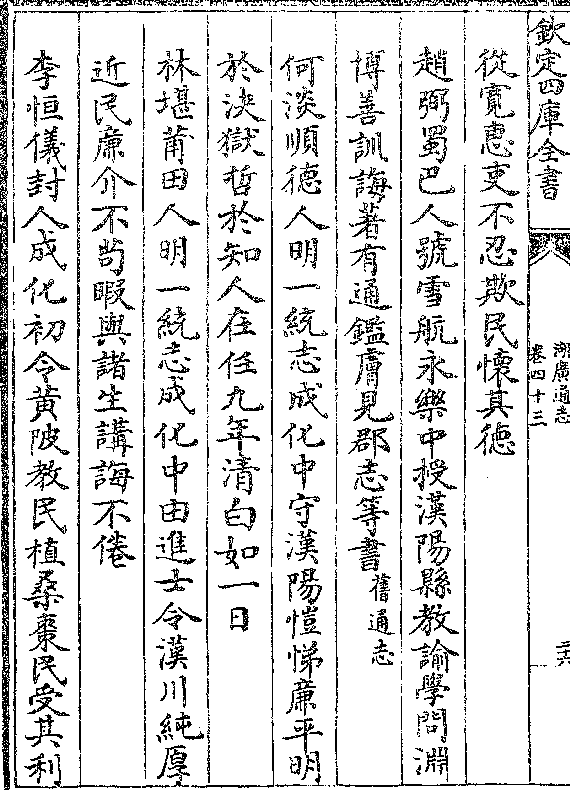 欽定四庫全書
湖廣通志
卷四十三
二六
從寛恵吏不忍欺民懐其徳
趙弼蜀巴人號雪航永樂中授漢陽縣教諭學問淵
博善訓誨著有通鑑膚見郡志等書舊通志
何淡順徳人明一統志成化中守漢陽愷悌廉平明
於決獄哲於知人在任九年清白如一日
林堪莆田人明一統志成化中由進士令漢川純厚
近民廉介不茍暇與諸生講誨不倦
李恒儀封人成化初令黄陂教民植桑棗民受其利